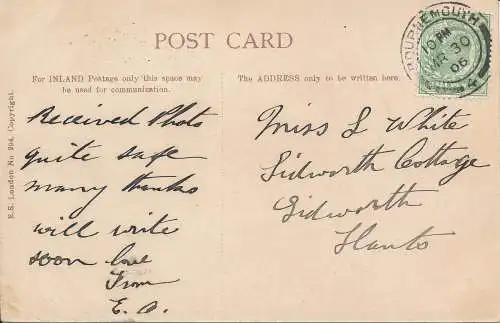 POST CARD
For INLAND Postage only this space may
be used for communication.
The ADDRESS only to be written here.
E.S. London No 994. Copyright.
BOURNEMOUTH
10 PM
30
06
4
Received Photo
quite safe
many thanks
will write
soon love
From
E. A.
Miss L White
Sidworth Cottage
Sidworth
Hants